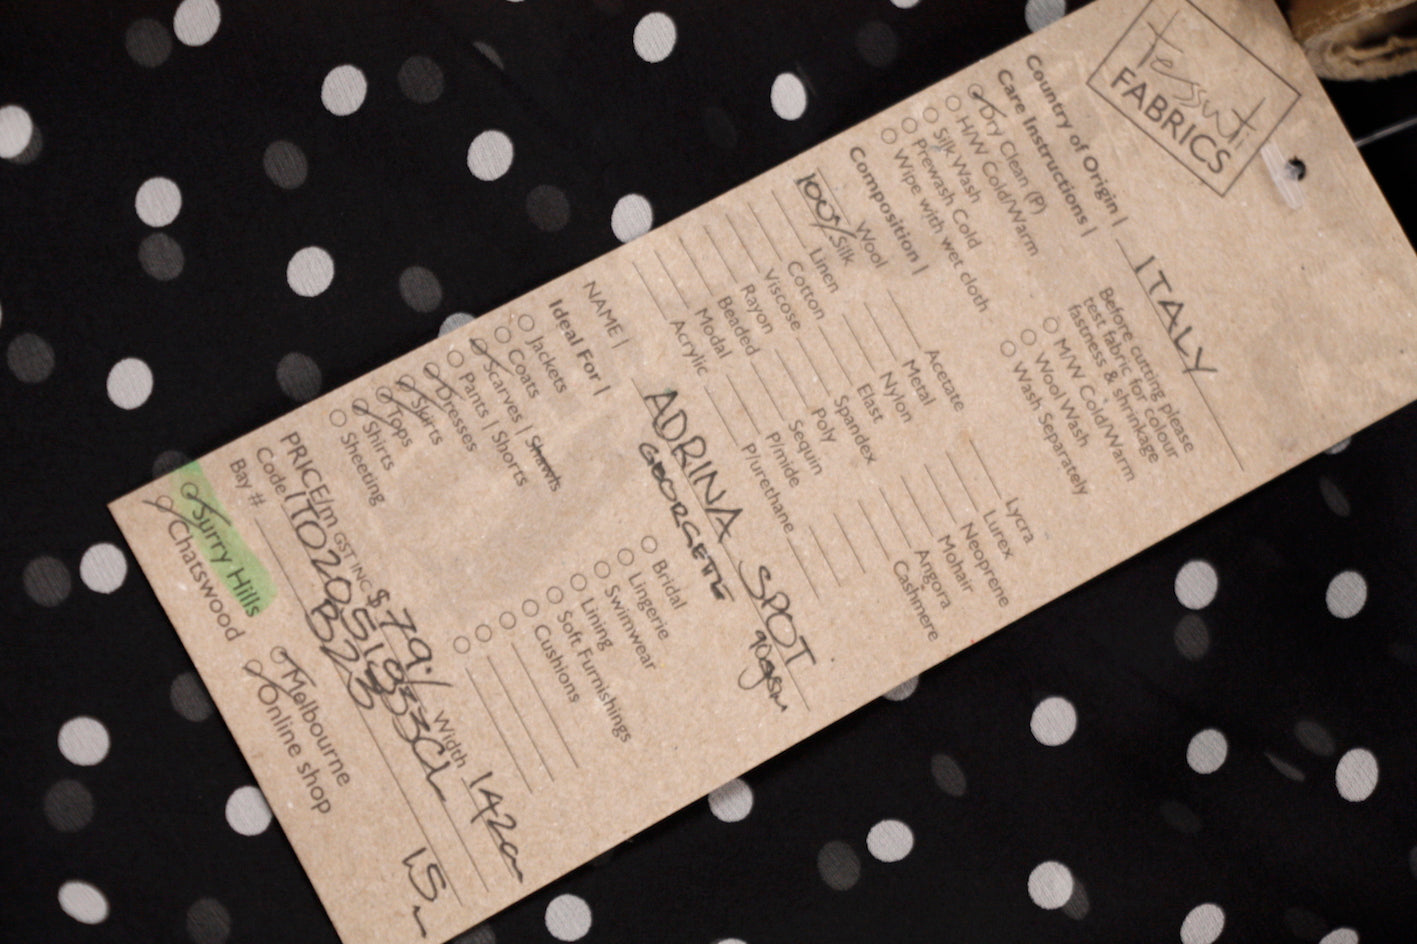 Tessuti
FABRICS
Country of Origin | ITALY
Care Instructions |
Dry Clean (P)
H/W Cold/Warm
Silk Wash
Prewash Cold
Wipe with wet cloth
Before cutting please
test fabric for colour
fastness & shrinkage
M/W Cold/Warm
Wool Wash
Wash Separately
Composition |
Wool
100% Silk
Linen
Cotton
Viscose
Rayon
Beaded
Modal
Acrylic
Acetate
Metal
Nylon
Elast
Spandex
Poly
Sequin
P/mide
P/urethane
Lycra
Lurex
Neoprene
Mohair
Angora
Cashmere
NAME | ADRINA SPOT
GEORGETTE 90gsm
Ideal For |
Jackets
Coats
Scarves | Shawls
Pants | Shorts
Dresses
Skirts
Tops
Shirts
Sheeting
Bridal
Lingerie
Swimwear
Lining
Soft Furnishings
Cushions
PRICE/m GST INC $79./ Width 142cm
Code
Bay # B23 15m
Surry Hills
Chatswood
Melbourne
Online shop